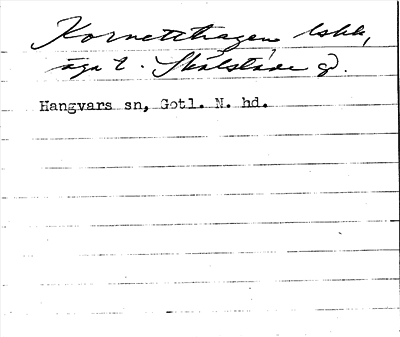 Kornetthagen lskh,
äga t. Skälstäde gd.
Hangvars sn, Gotl. N. hd.